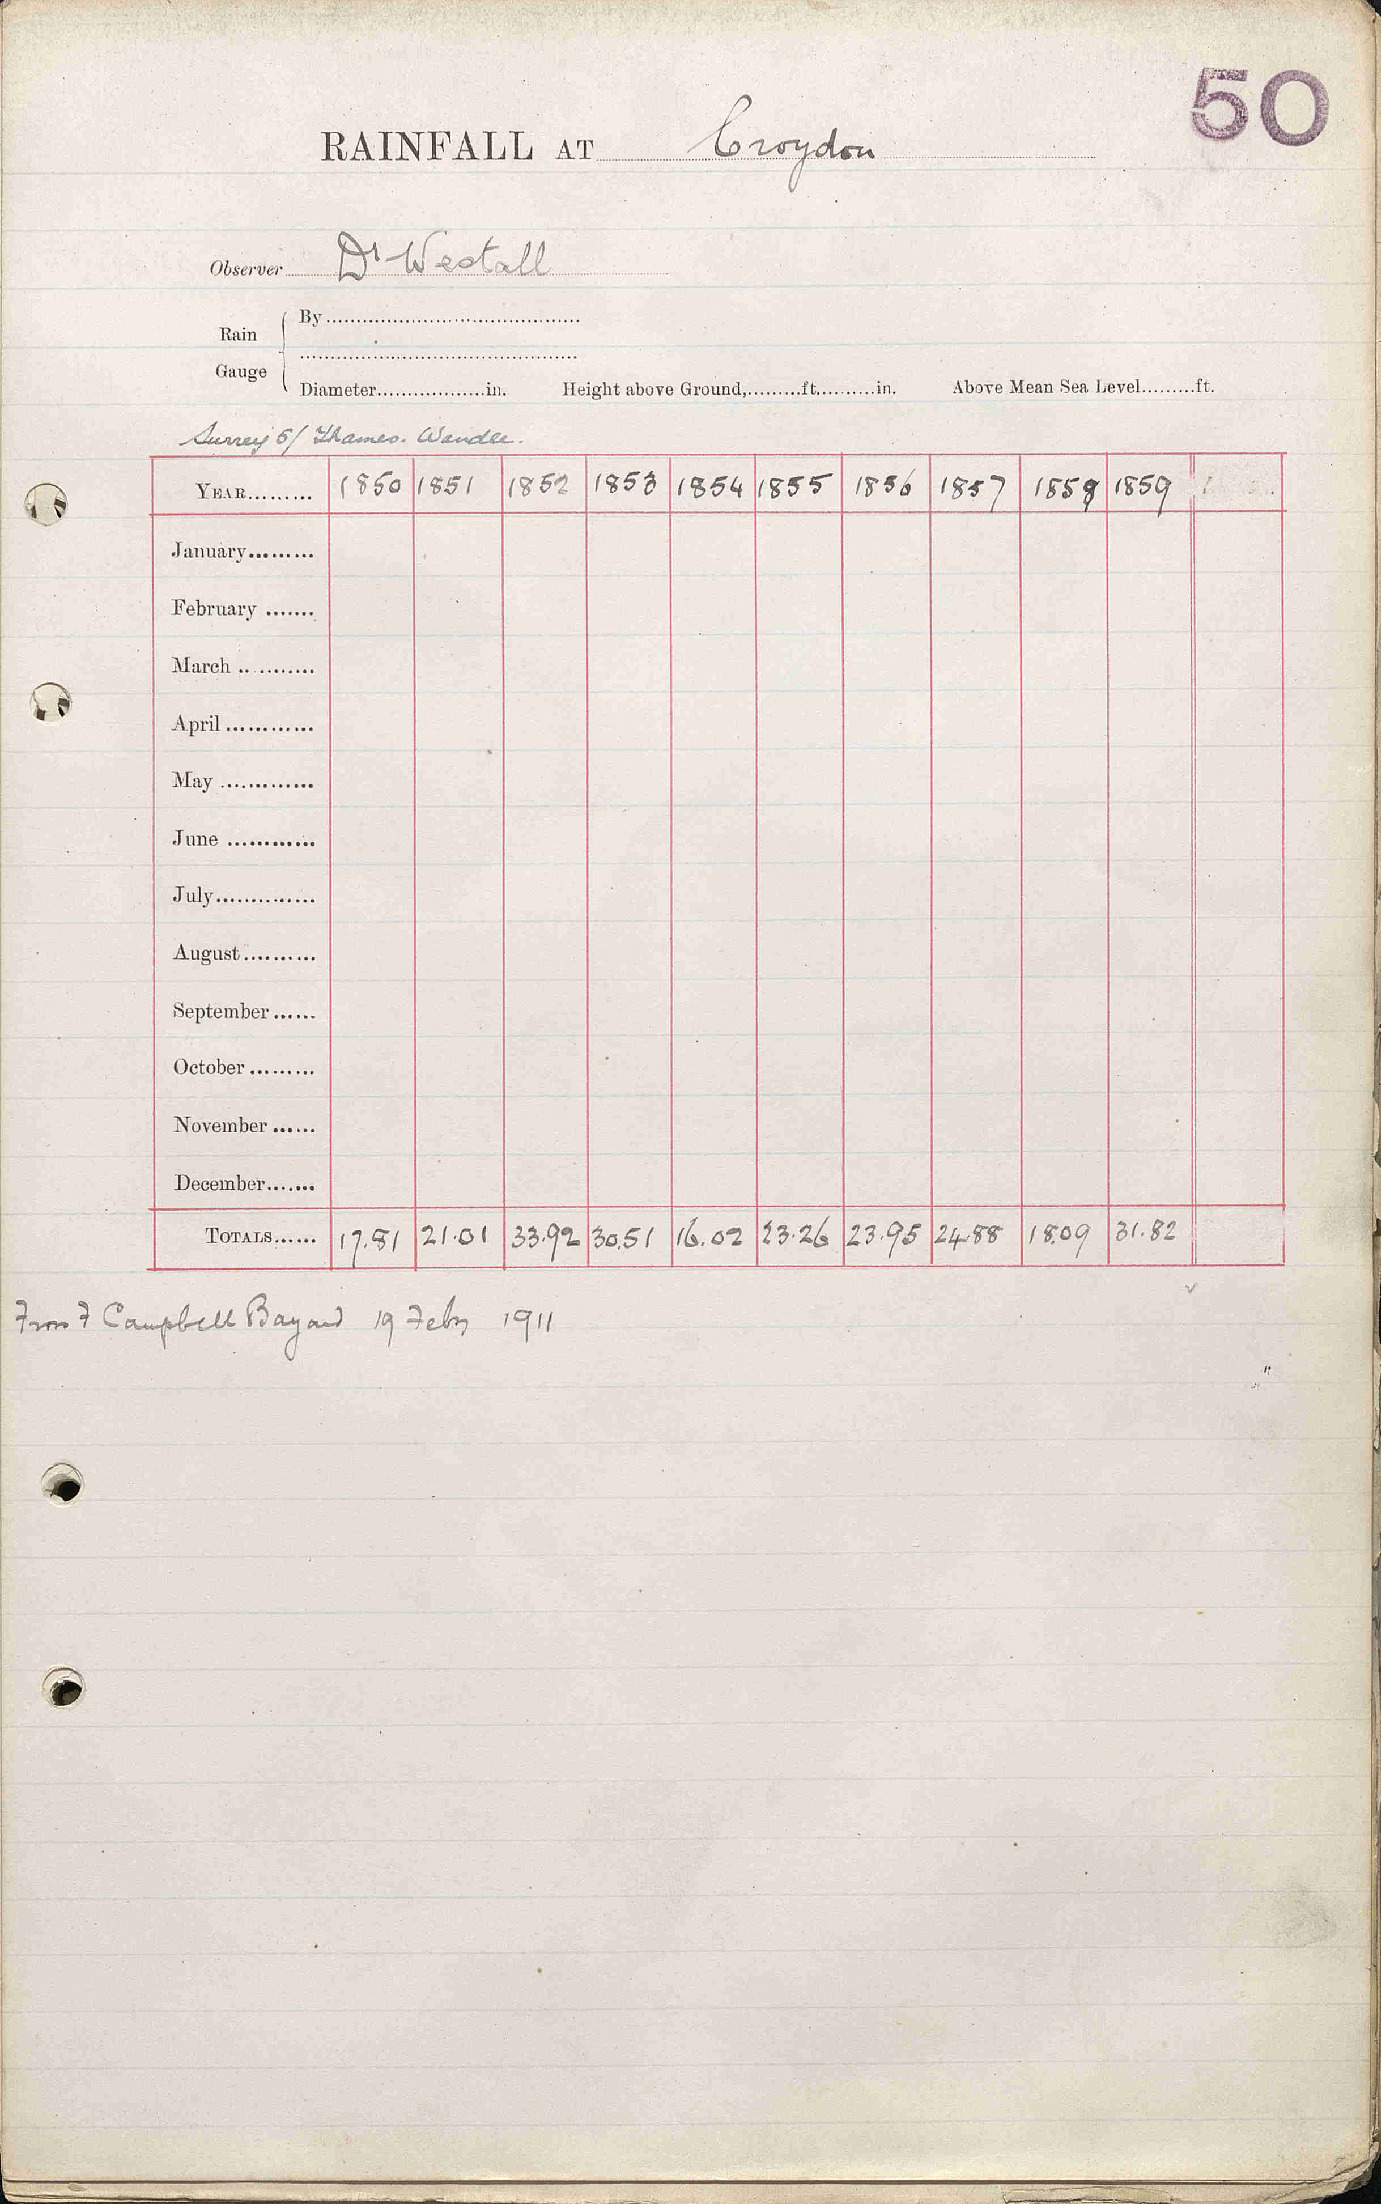 50
RAINFALL AT Croydon
Observer Dr Westall
Rain Gauge
By
Diameter in. Height above Ground, ft. in. Above Mean Sea Level ft.
Surrey 5/ Thames. Wandle.
YEAR 1850 1851 1852 1853 1854 1855 1856 1857 1858 1859
January
February
March
April
May
June
July
August
September
October
November
December
TOTALS 17.81 21.01 33.92 30.51 16.02 23.26 23.95 24.88 18.09 31.82
From F Campbell Bayard 19 Feby 1911